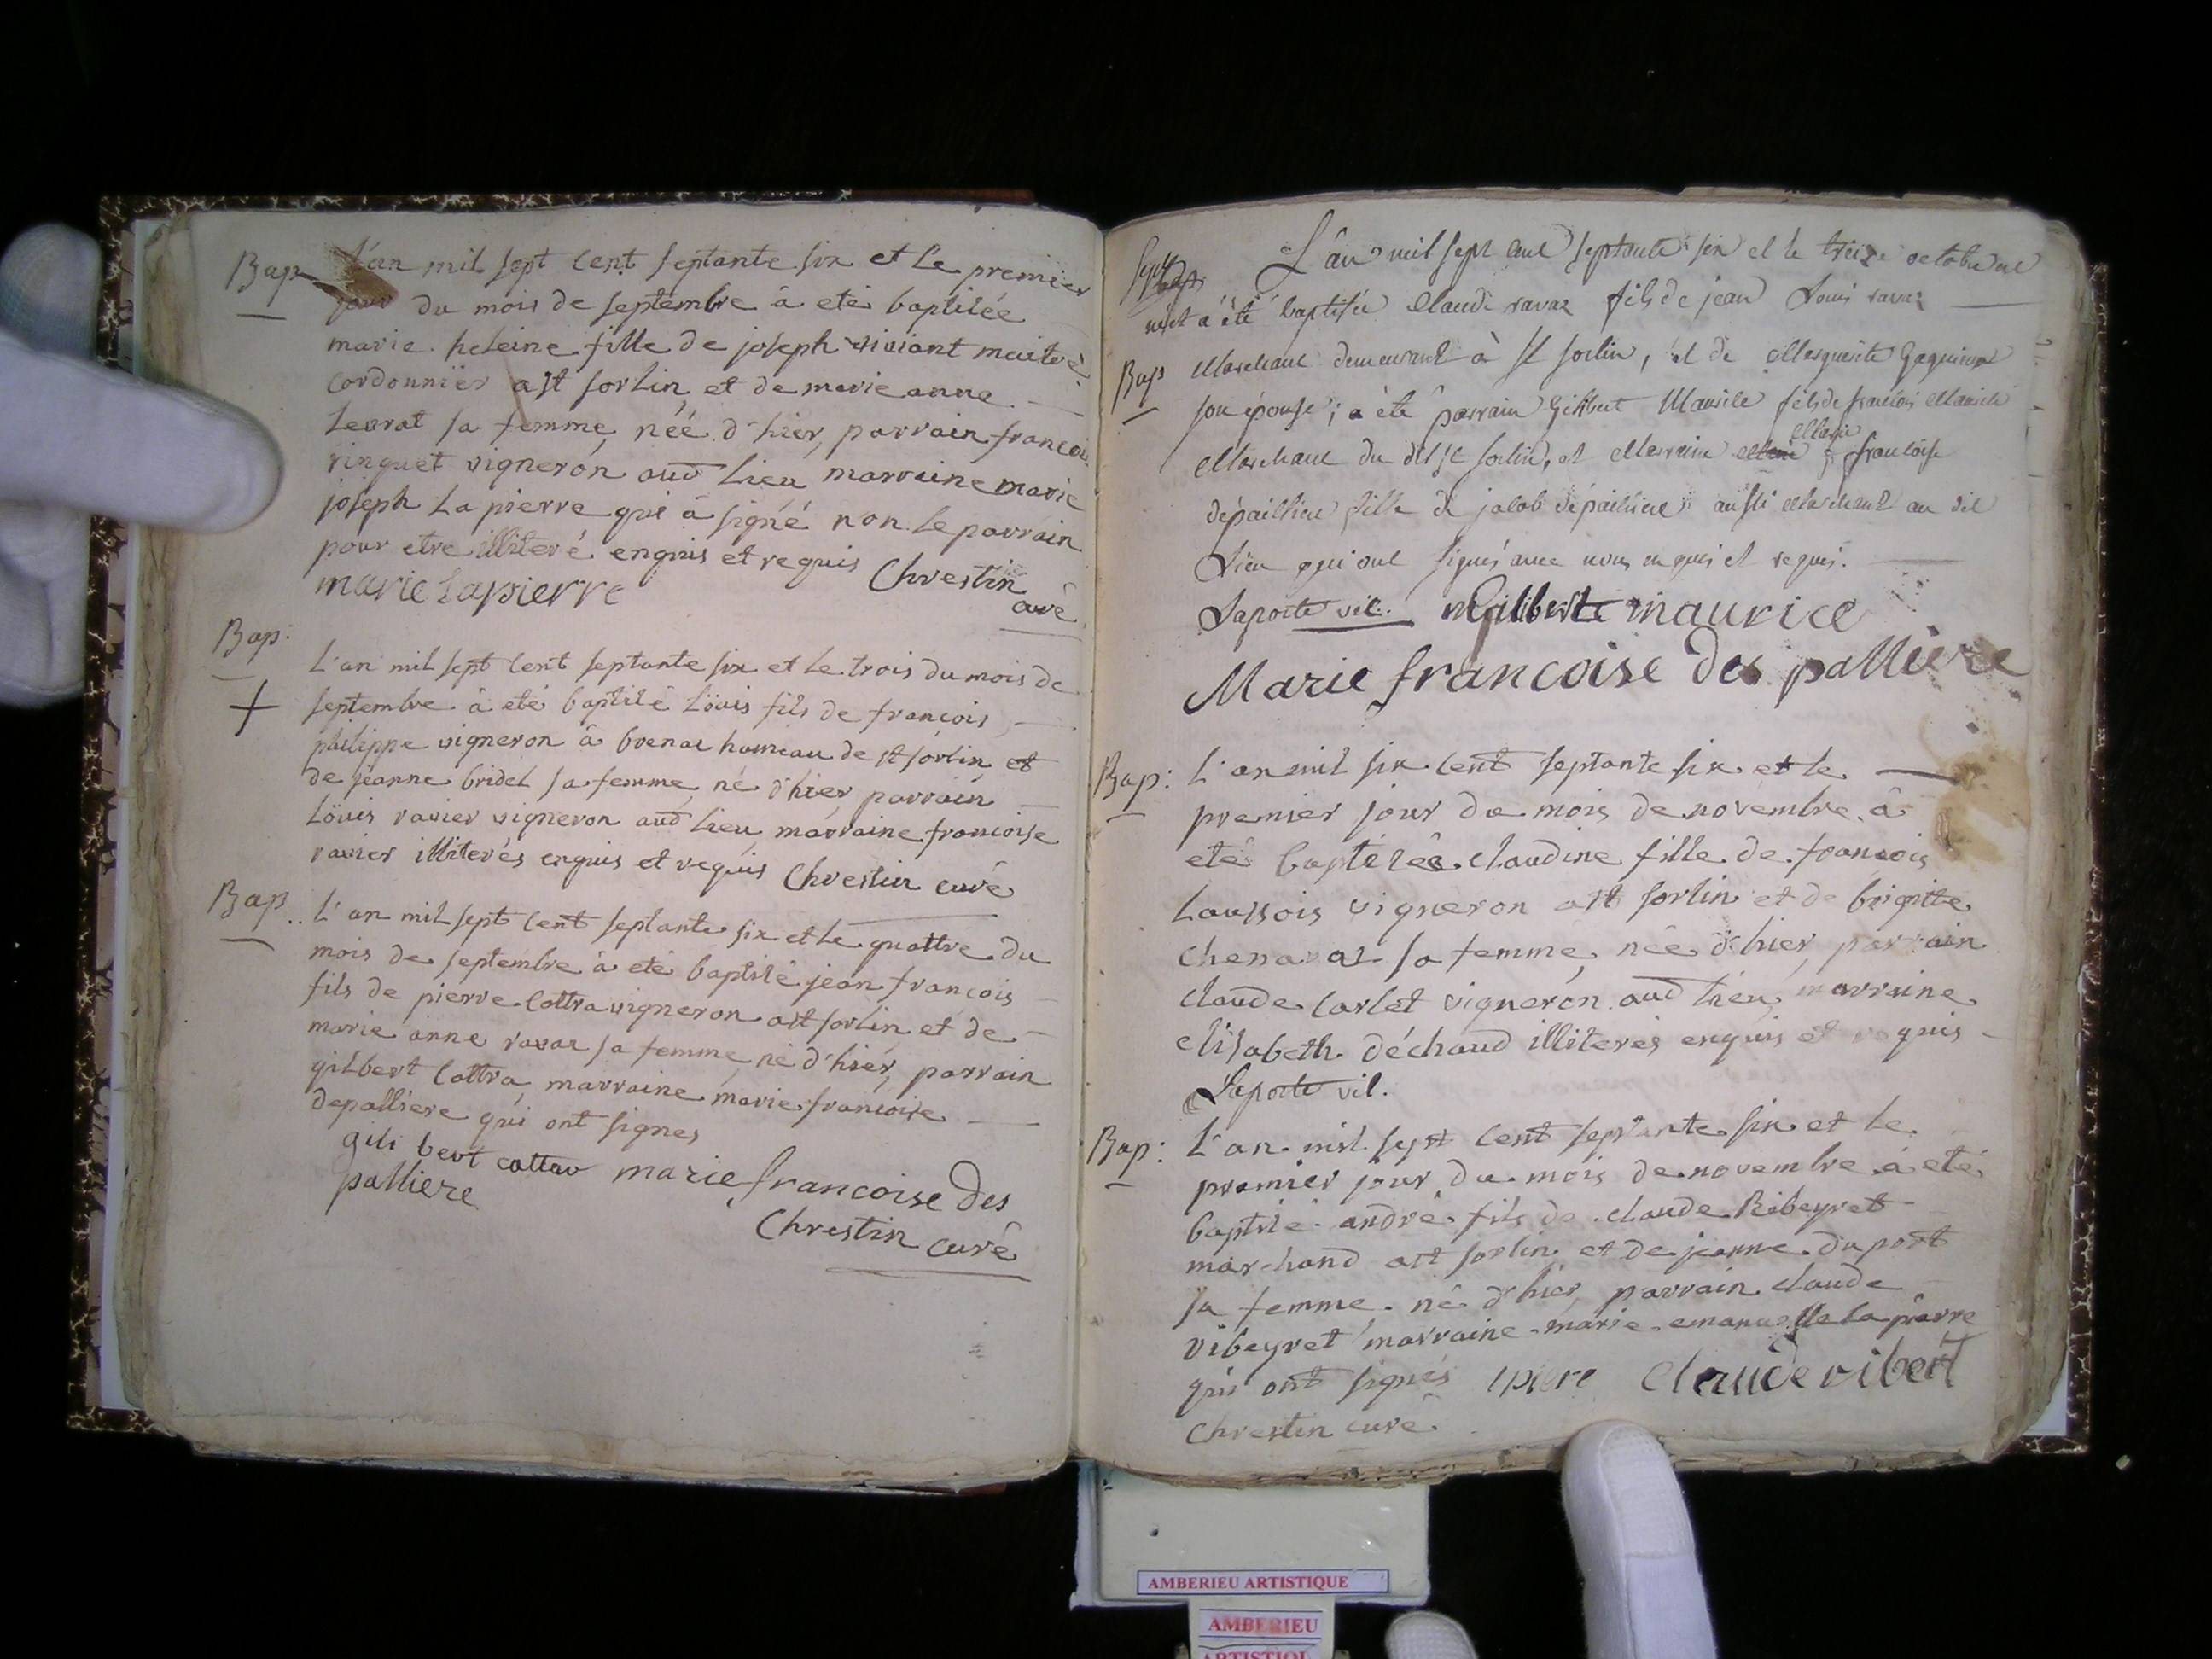 Bap
L'an mil sept cent septante six et le premier
jour du mois de septembre à eté baptisée
marie heleine fille de joseph viviant maitre
cordonnier a st sorlin et de marie anne
levrat sa femme, néé d'hier, parrain françois
ringuet vigneron aud lieu marraine marie
joseph La pierre qui à signé non le parrain
pour etre illiteré enquis et requis Chrestin
curé
marie Lapierre
Bap:
L'an mil sept cent septante six et le trois du mois de
septembre à eté baptisé Löuis fils de françois
philippe vigneron à brenaz hameau de st sorlin et
de jeanne bridet sa femme, né d'hier, parrain
Löuis ravier vigneron aud lieu, marraine francoise
ravier illiterés enquis et requis Chrestin curé
Bap
L'an mil sept cent septante six et le quattre du
mois de septembre à eté baptisé jean françois
fils de pierre Cottra vigneron a st sorlin et de
marie anne ravaz sa femme, né d'hiér, parrain
gilbert Cottra, marraine marie francoise
depalliere qui ont signes
gili bert cottav marie francoise Des
palliere
Chrestin curé
Sept
L'an mil sept cent septante six et le treize octobre
a été baptisée Claude ravaz fils de jean Louis ravaz
Bap
Marchant demeurant à st sorlin, et de Marguerite
son épouse; a été parrain Gilbert fils de françois
Marchant du dit st sorlin, et Marraine Marie françoise
dépailliere fille de jacob dépailliere aussi Marchant au dit
Lieu qui ont signés avec nous enquis et requis.
Laporte vic. Gilberte maurice
Marie francoise des palliere
Bap:
L'an mil six cent septante six et le
premier jour du mois de novembre à
eté baptisée claudine fille de francois
Laussois vigneron a st sorlin et de brigitte
chenavaz sa femme, née d'hier, parrain
claude Carlet vigneron aud lieu, marraine
elisabeth déchaud illiterés enquis et requis
Laporte vic.
Bap:
L'an mil sept cent septante six et le
premier jour du mois de novembre à eté
baptisé andré fils de claude Ribeyret
marchand a st sorlin et de jeanne duport
sa femme, né d'hier, parrain claude
ribeyret marraine marie emanuelle la pierre
qui ont signés lpiere Claude ribert
Chrestin curé
AMBERIEU ARTISTIQUE
AMBERIEU
ARTISTIQUE